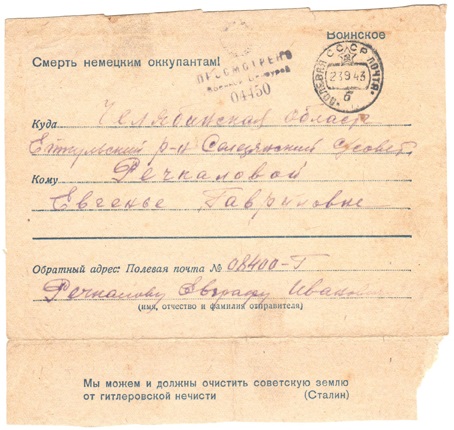 Воинское
Смерть немецким оккупантам!
ПРОСМОТРЕНО
Военной Цензурой
04450
ПОЛЕВАЯ ПОЧТА
СССР
23 9 43
б
Куда Челябинская область
Еткульский р-н Селезянский с/совет
Кому Речкаловой
Евгенье Гавриловне
Обратный адрес: Полевая почта № 08400-Г
Речкалову Евграфу Иванов
(имя, отчество и фамилия отправителя)
Мы можем и должны очистить советскую землю
от гитлеровской нечисти (Сталин)